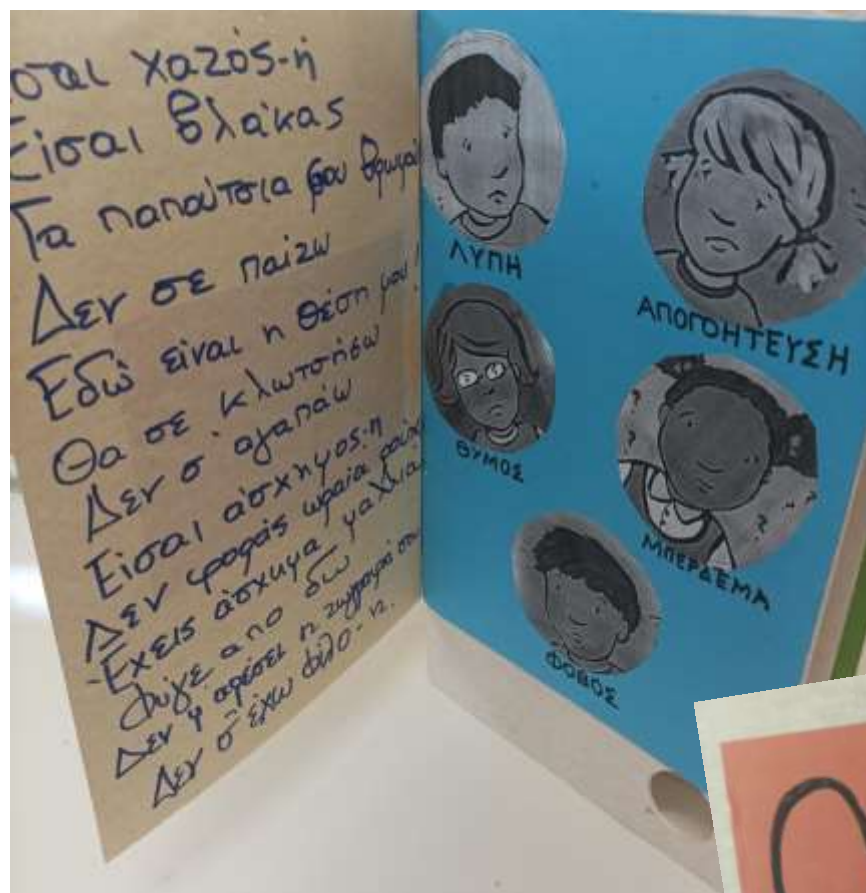 σαι χαζός-ή
Είσαι βλάκας
Τα παπούτσια σου
Δεν σε παίζω
Εδώ είναι η θέση μου!
Θα σε κλωτσήσω
Δεν σ' αγαπάω
Είσαι άσχημος-η
Δεν φοράς ωραία
Έχεις άσχημα μαλλιά
Φύγε απο δω
Δεν μ' αρέσει η ζωγραφιά σου
Δεν σ' έχω φίλο-η.
ΛΥΠΗ
ΑΠΟΓΟΗΤΕΥΣΗ
ΘΥΜΟΣ
ΜΠΕΡΔΕΜΑ
ΦΟΒΟΣ